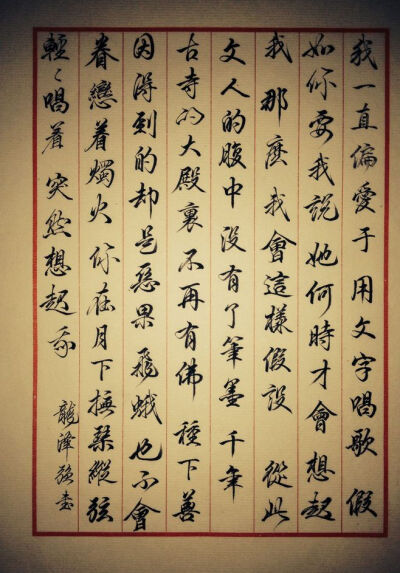 我一直偏愛于 用文字唱歌 假
如你要我說 她何時才會想起
我 那麽我會這樣假設 從此
文人的腹中没有了筆墨 千年
古寺的大殿裏 不再有佛 種下善
因得到的却是惡果 飛蛾也不會
眷戀着燭火 你在月下撫琴縱弦
輕々唱着 突然想起我
龍澤強書